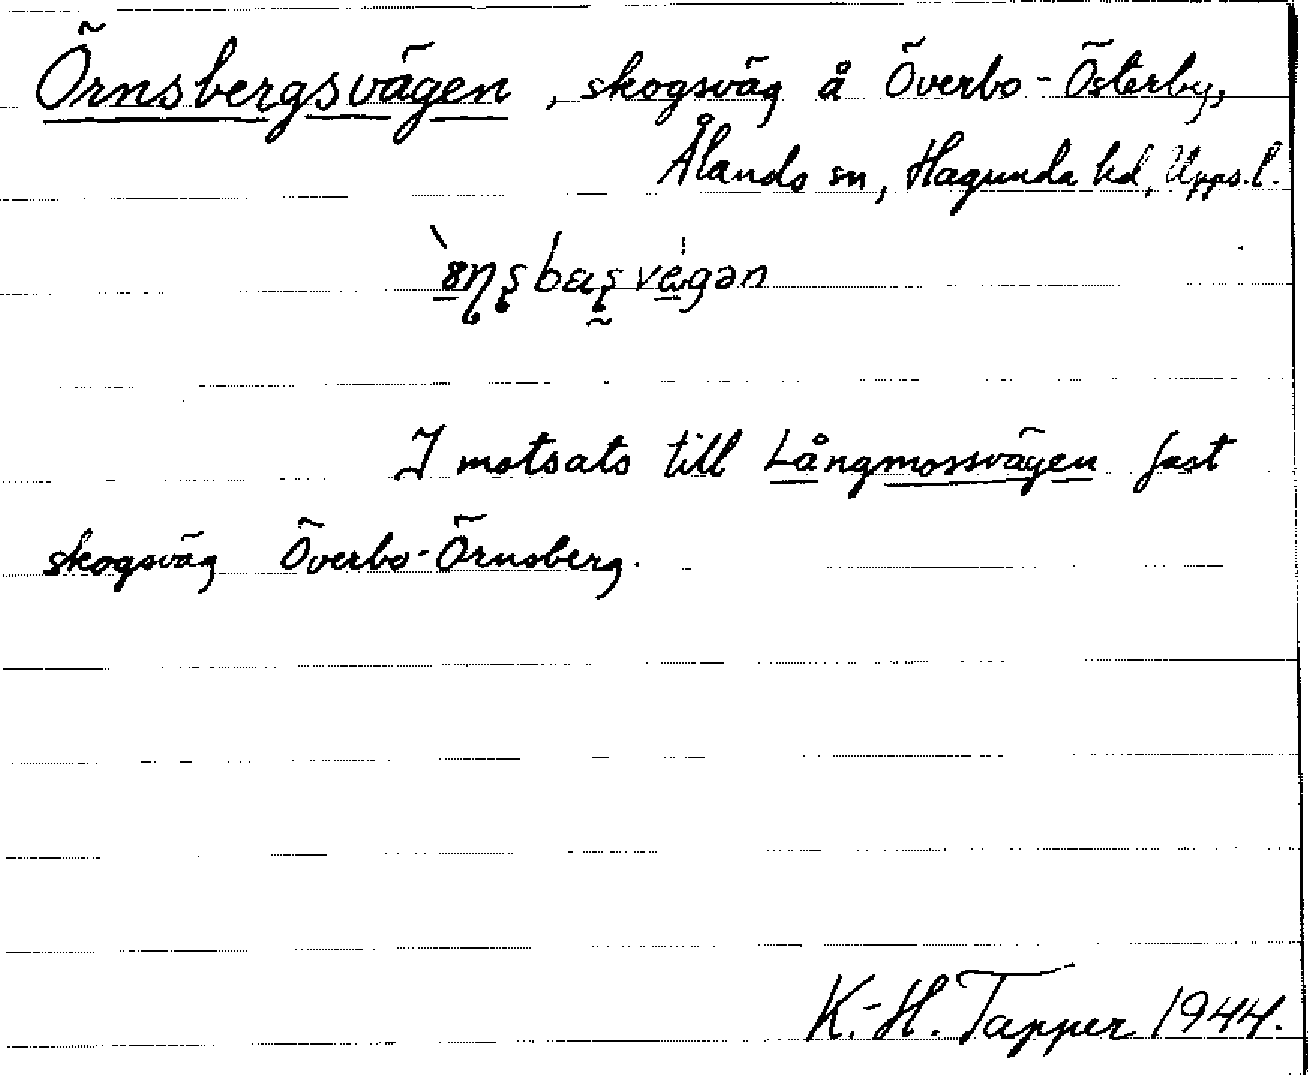 Örnsbergsvägen, skogsväg å Överbo-Österby,
Ålands sn, Hagunda hd, Upps. l.
I motsats till Långmossvägen fast
skogsväg Överbo-Örnsberg.
K.-H. Tapper 1944.